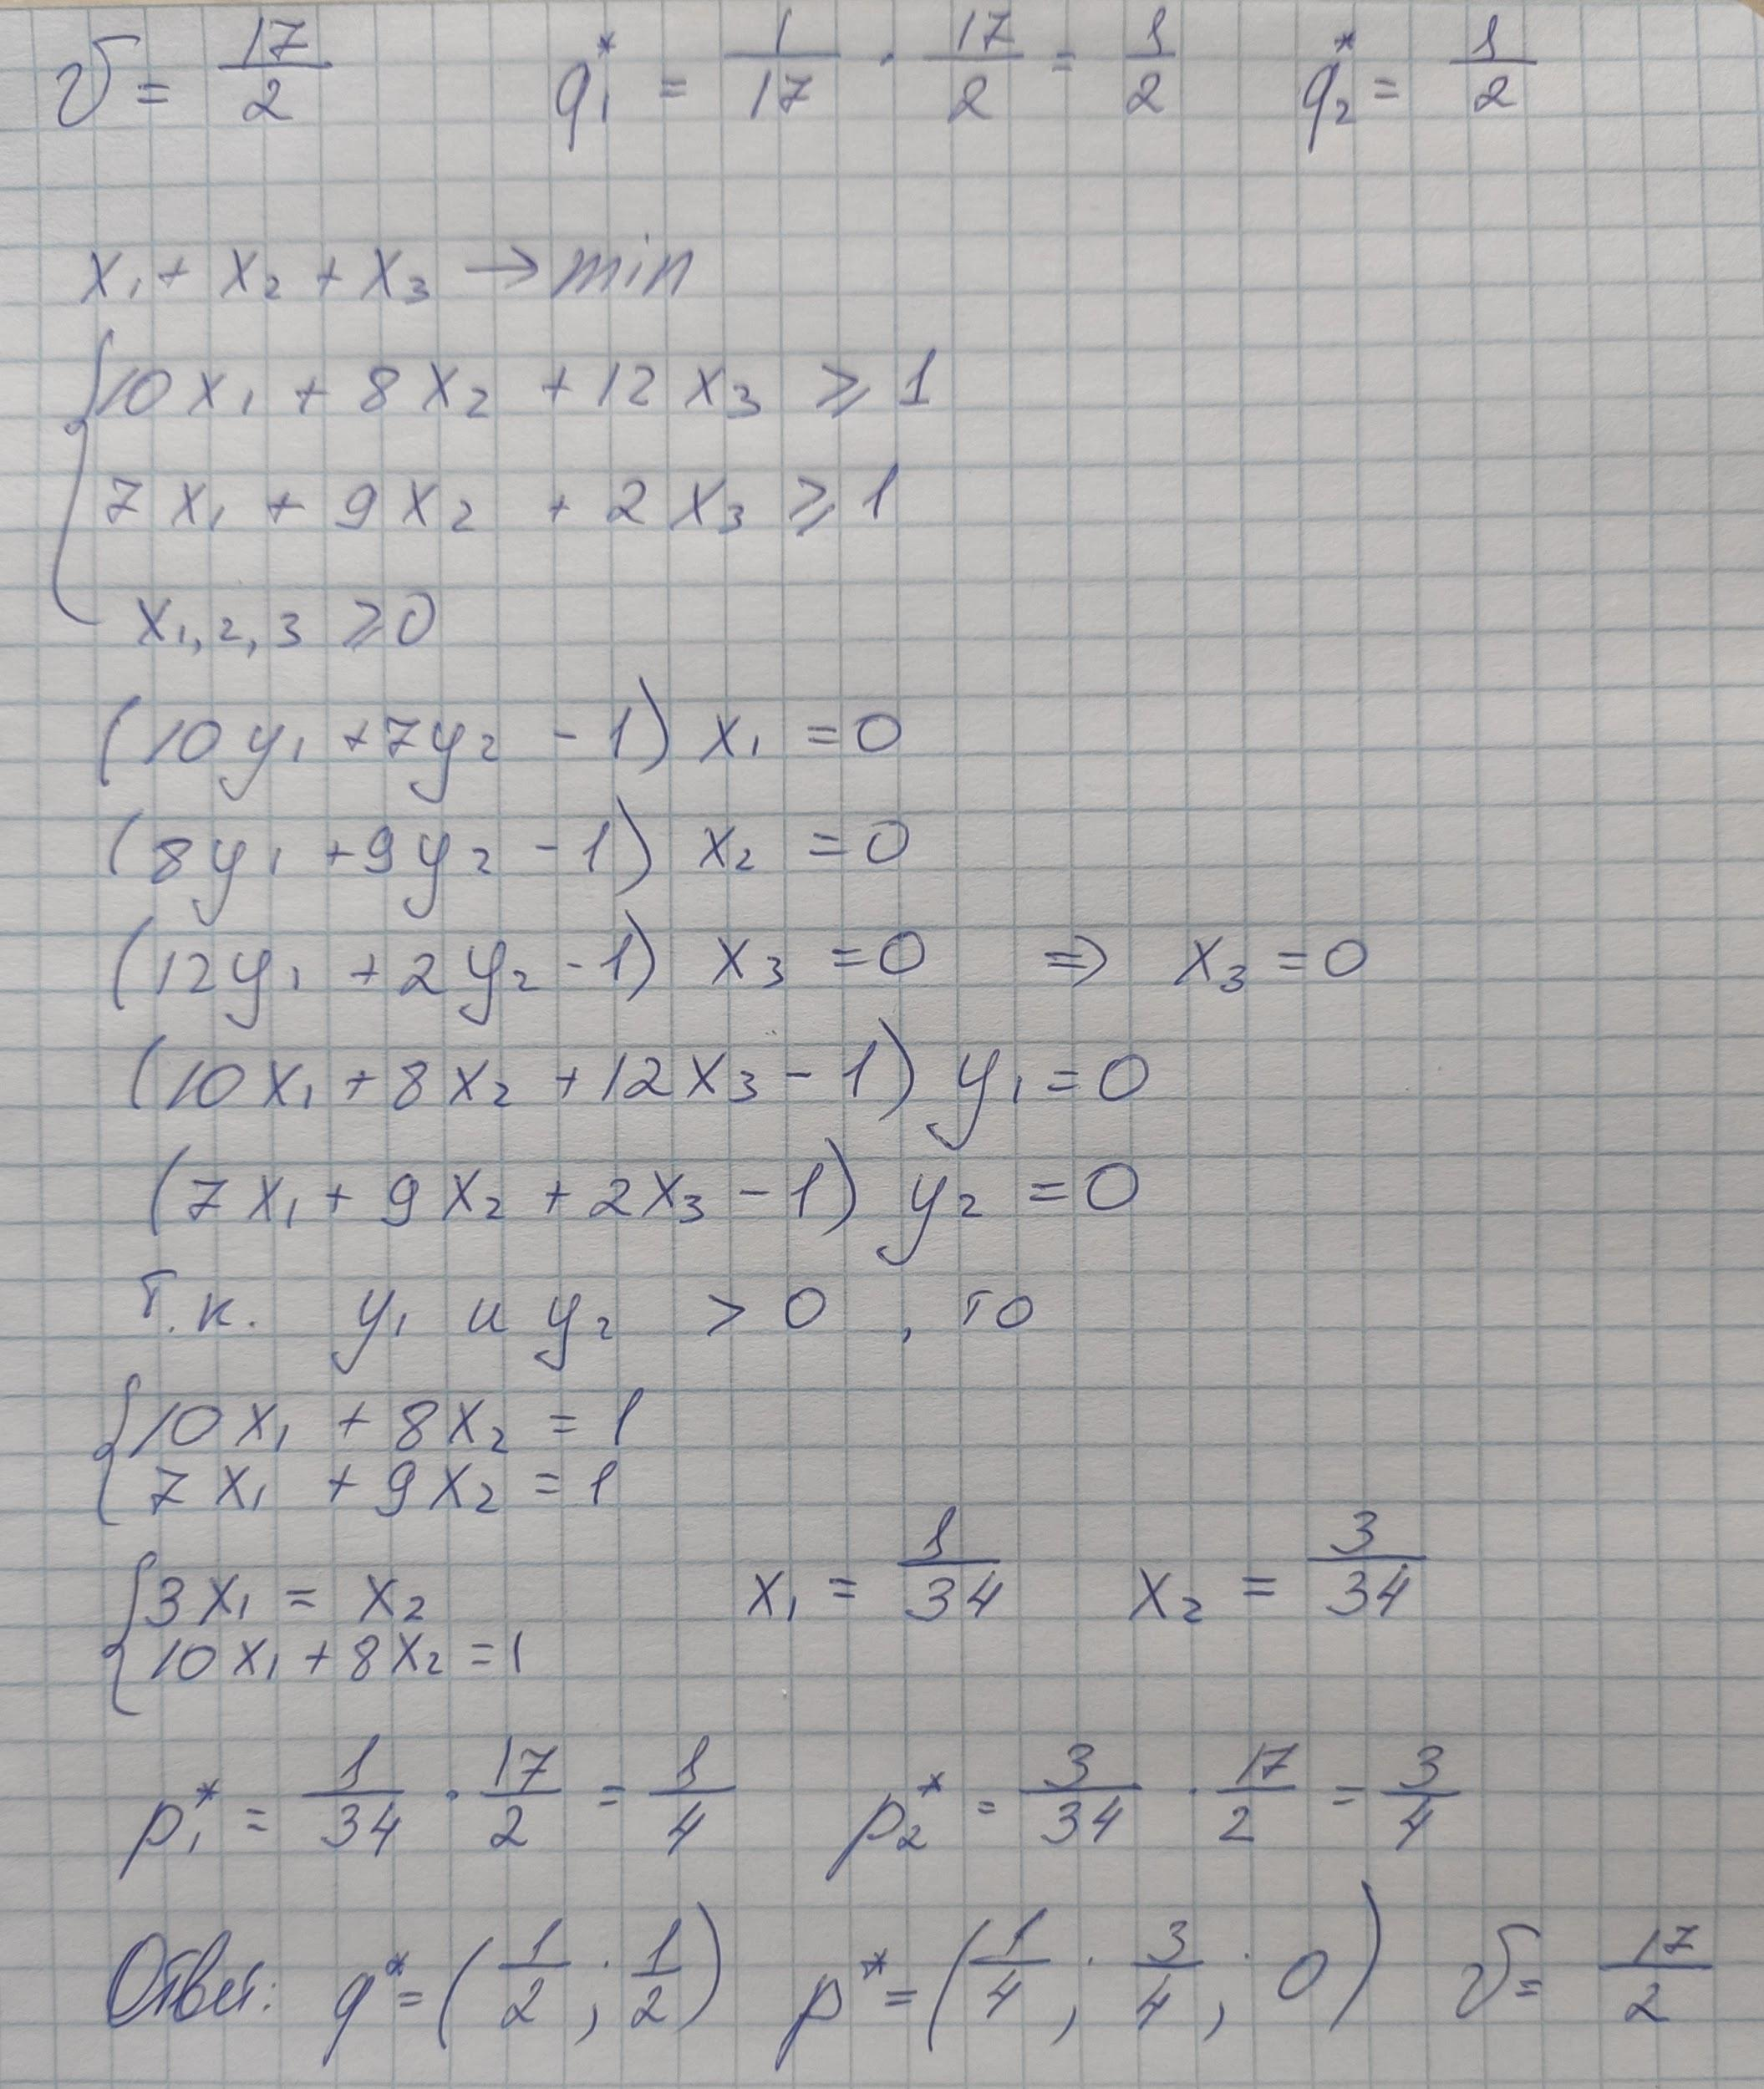 v = 17/2 q₁* = 1/17 · 17/2 = 1/2 q₂* = 1/2
x₁ + x₂ + x₃ → min
{ 10x₁ + 8x₂ + 12x₃ ⩾ 1
7x₁ + 9x₂ + 2x₃ ⩾ 1
x₁,₂,₃ ⩾ 0
(10y₁ + 7y₂ - 1) x₁ = 0
(8y₁ + 9y₂ - 1) x₂ = 0
(12y₁ + 2y₂ - 1) x₃ = 0 ⇒ x₃ = 0
(10x₁ + 8x₂ + 12x₃ - 1) y₁ = 0
(7x₁ + 9x₂ + 2x₃ - 1) y₂ = 0
Т.к. y₁ и y₂ > 0, то
{ 10x₁ + 8x₂ = 1
7x₁ + 9x₂ = 1
{ 3x₁ = x₂ x₁ = 1/34 x₂ = 3/34
10x₁ + 8x₂ = 1
p₁* = 1/34 · 17/2 = 1/4 p₂* = 3/34 · 17/2 = 3/4
Ответ: q* = (1/2; 1/2) p* = (1/4; 3/4; 0) v = 17/2